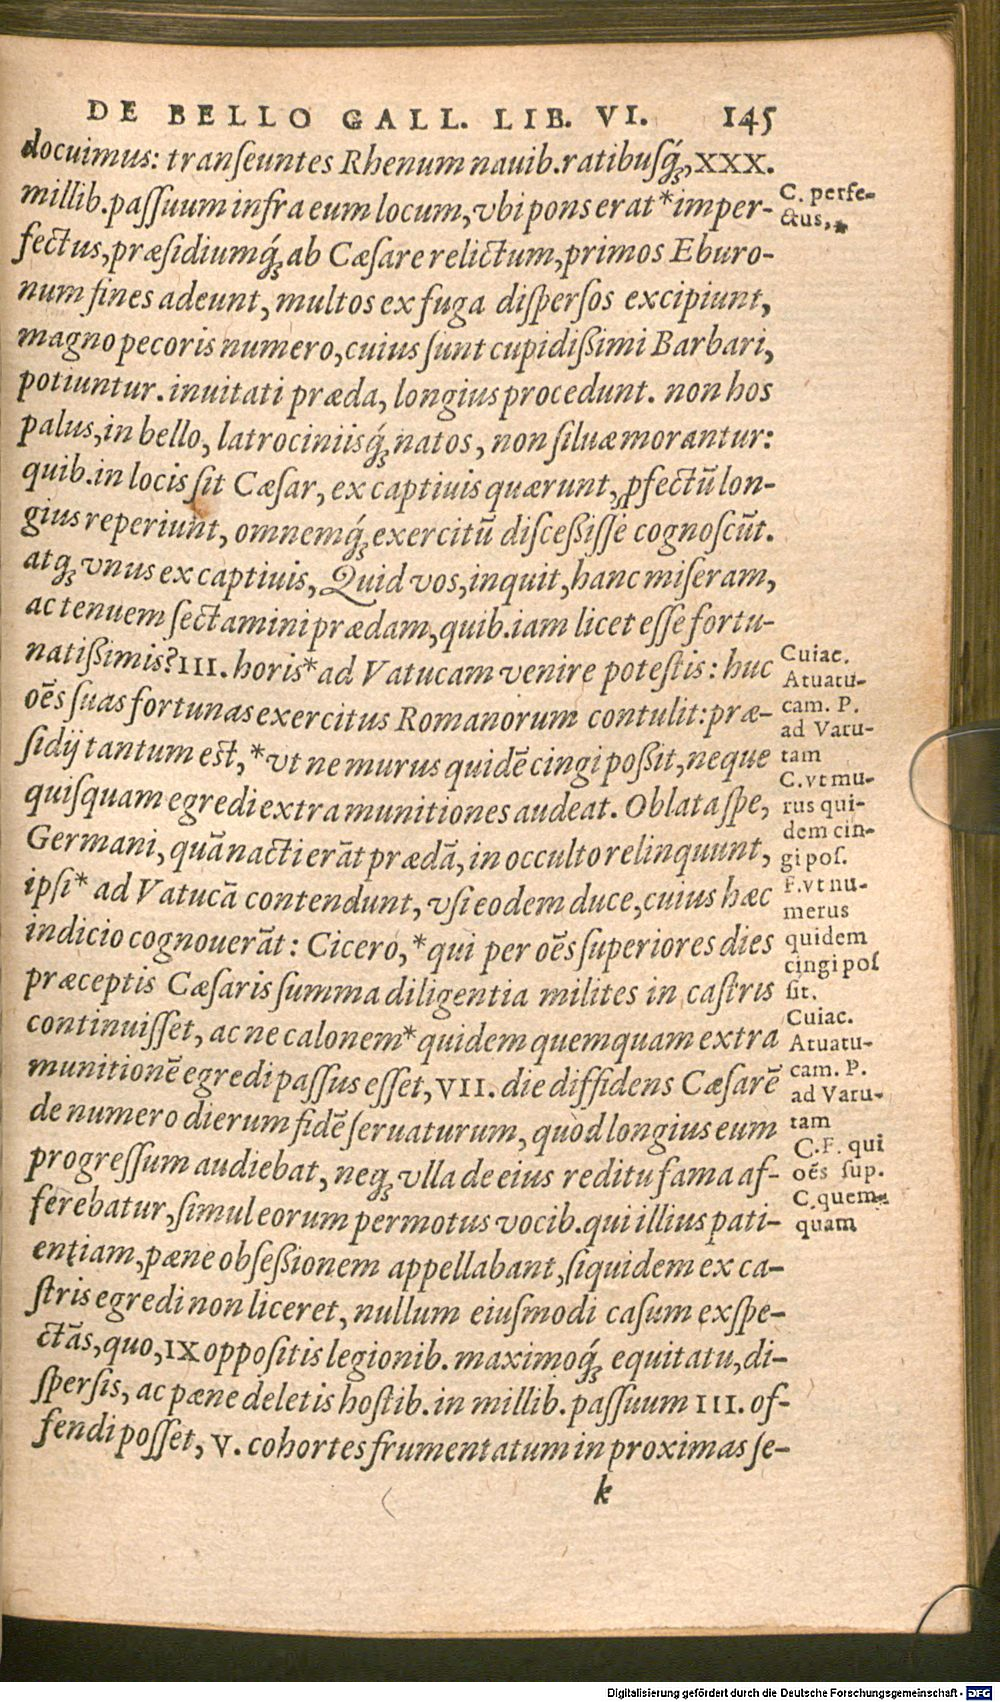 DE BELLO GALL. LIB. VI. 145
docuimus: tranſeuntes Rhenum nauib. ratibuſq́ꝫ, XXX.
millib. paſſuum infra eum locum, vbi pons erat * imper-
fectus, præſidiumq́ꝫ ab Cæſare relictum, primos Eburo-
num fines adeunt, multos ex fuga diſperſos excipiunt,
magno pecoris numero, cuius ſunt cupidißimi Barbari,
potiuntur. inuitati præda, longius procedunt. non hos
palus, in bello, latrociniisq́ꝫ natos, non ſiluæ morantur:
quib. in locis ſit Cæſar, ex captiuis quærunt, ꝓfectū lon-
gius reperiunt, omnemq́ꝫ exercitū diſceßiſſe cognoſcūt.
atqꝫ vnus ex captiuis, Quid vos, inquit, hanc miſeram,
ac tenuem ſectamini prædam, quib. iam licet eſſe fortu-
natißimis? III. horis * ad Vatucam venire poteſtis: huc
oēs ſuas fortunas exercitus Romanorum contulit: præ-
ſidij tantum est, * vt ne murus quidē cingi poßit, neque
quiſquam egredi extra munitiones audeat. Oblata ſpe,
Germani, quā nacti erāt prædā, in occulto relinquunt,
ipſi * ad Vatucā contendunt, vſi eodem duce, cuius hæc
indicio cognouerāt: Cicero, * qui per oēs ſuperiores dies
præceptis Cæſaris ſumma diligentia milites in caſtris
continuiſſet, ac ne calonem * quidem quemquam extra
munitionē egredi paſſus eſſet, VII. die diffidens Cæſarē
de numero dierum fidē ſeruaturum, quòd longius eum
progreſſum audiebat, neqꝫ vlla de eius reditu fama af-
ferebatur, ſimul eorum permotus vocib. qui illius pati-
entiam, pæne obſeßionem appellabant, ſiquidem ex ca-
ſtris egredi non liceret, nullum eiuſmodi caſum exſpe-
ctās, quo, IX oppoſitis legionib. maximoq́ꝫ equitatu, di-
ſperſis, ac pæne deletis hoſtib. in millib. paſſuum III. of-
fendi poſſet, V. cohortes frumentatum in proximas ſe-
k
C. perfe-
ctus, *
Cuiac.
Atuatu-
cam. P.
ad Varu-
tam
C. vt mu-
rus qui-
dem cin-
gi poſ.
F. vt nu-
merus
quidem
cingi poſ
ſit.
Cuiac.
Atuatu-
cam. P.
ad Varu-
tam
C.F. qui
oēs ſup.
C. quem-
quam
Digitalisierung gefördert durch die Deutsche Forschungsgemeinschaft - DFG